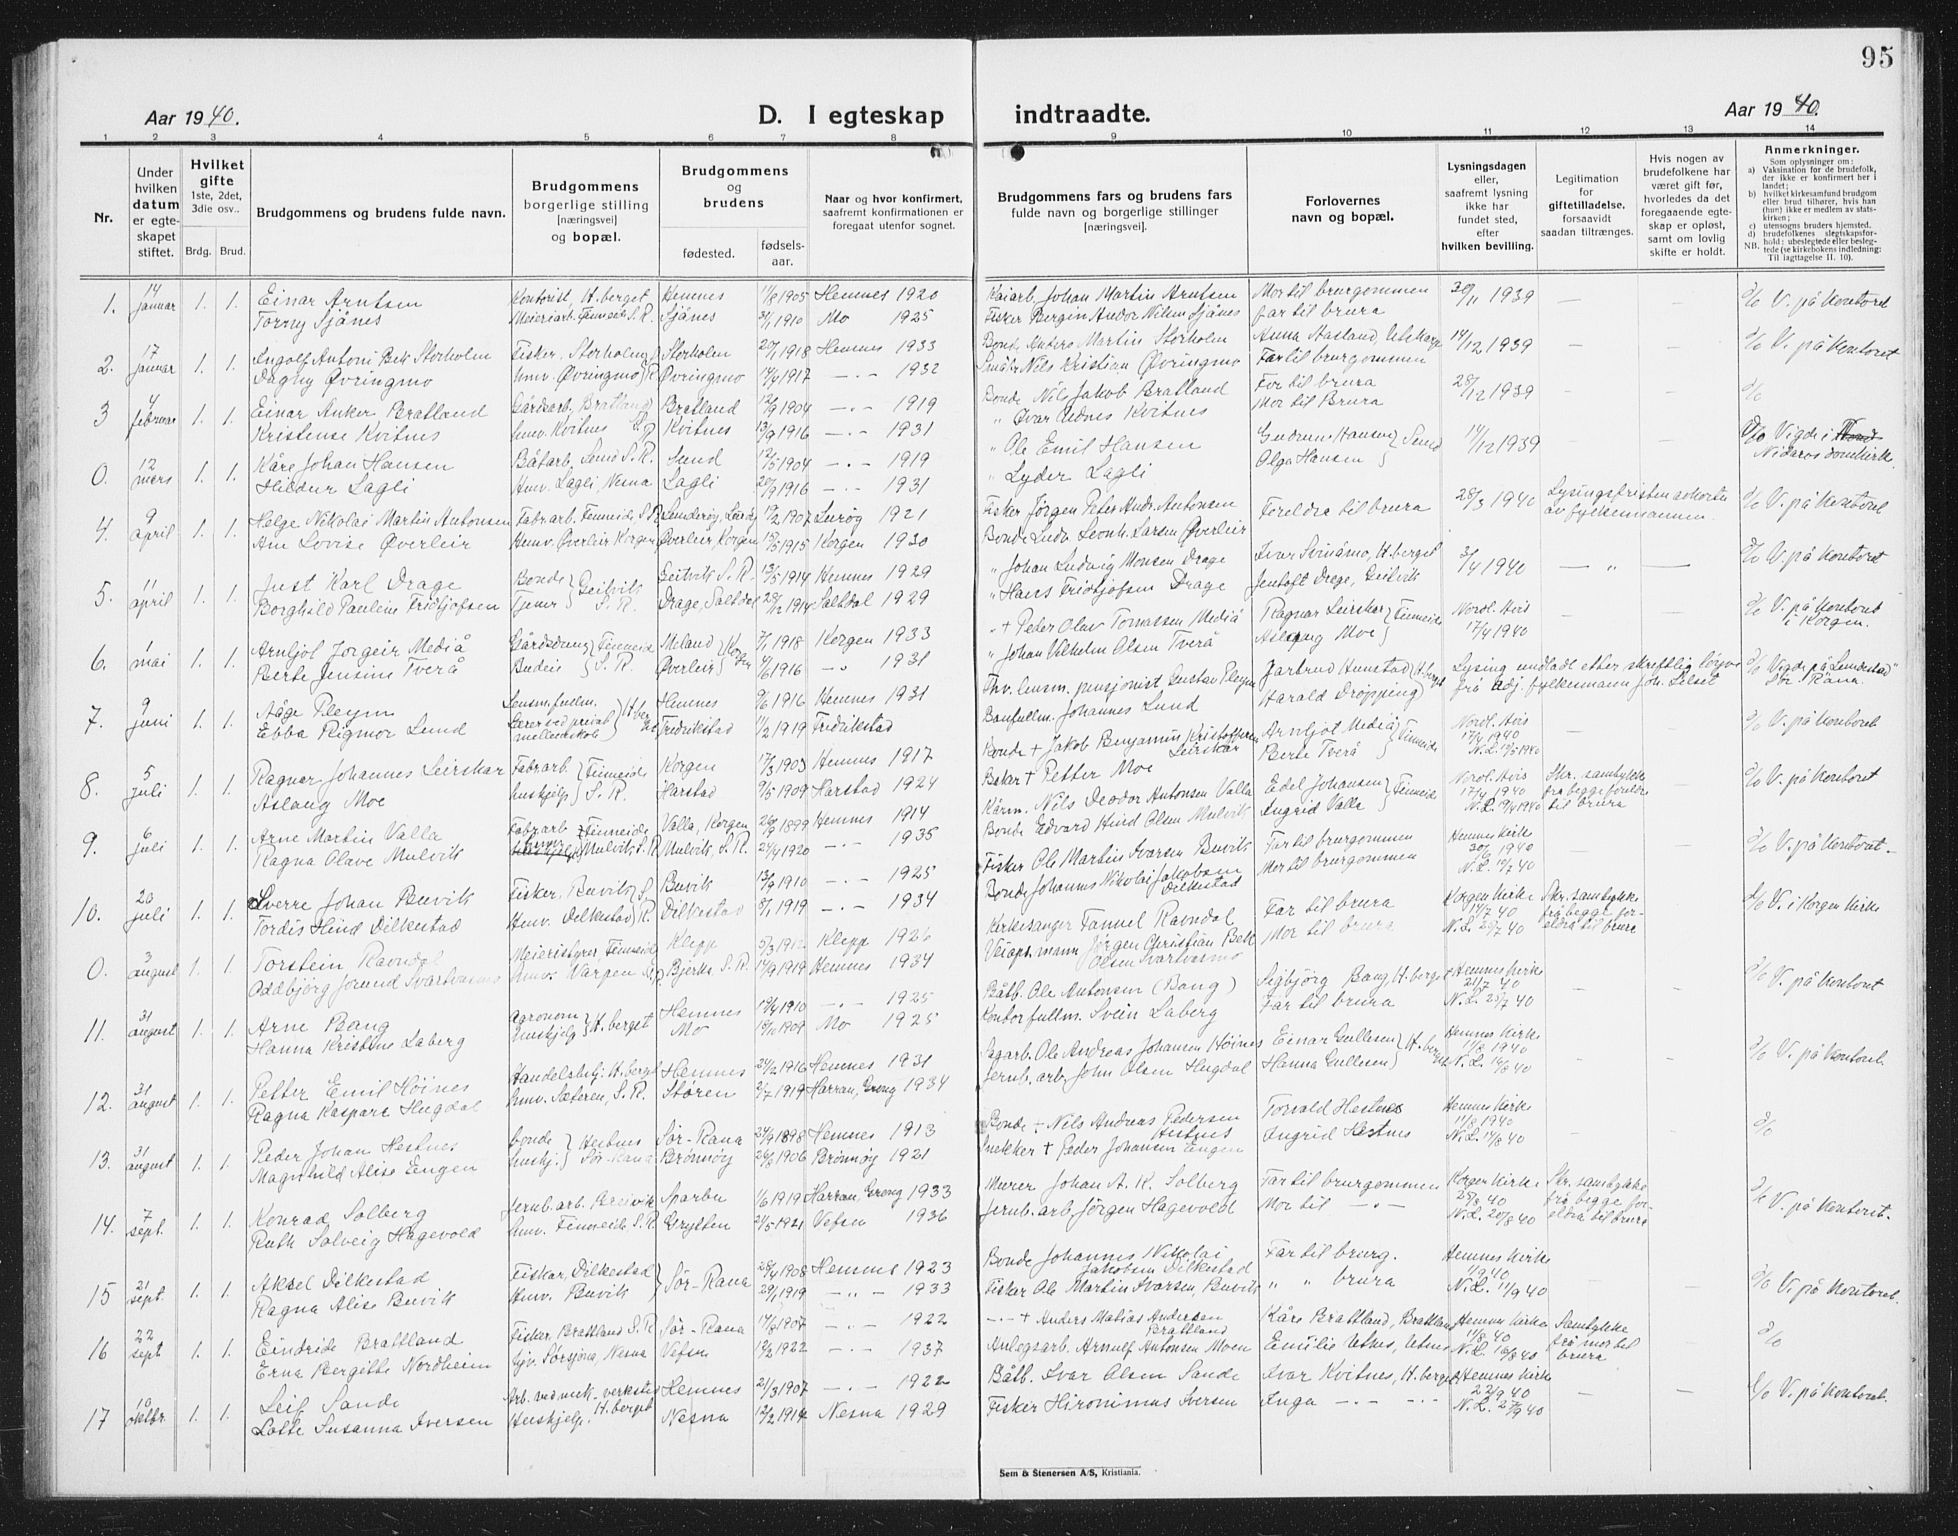 95
Aar 1940.
D. I egteskap indtraadte.
Aar 1940.
1 2 3 4 5 6 7 8 9 10 11 12 13 14
Nr.
Under hvilken datum er egteskapet stiftet.
Hvilket gifte 1ste, 2det, 3die osv..
Brdg. Brud.
Brudgommens og brudens fulde navn.
Brudgommens borgerlige stilling [næringsvei] og bopæl.
Brudgommens og brudens
fødested.
fødselsaar.
Naar og hvor konfirmert, saafremt konfirmationen er foregaat utenfor sognet.
Brudgommens fars og brudens fars fulde navn og borgerlige stillinger [næringsvei].
Forlovernes navn og bopæl.
Lysningsdagen eller, saafremt lysning ikke har fundet sted, efter hvilken bevilling.
Legitimation for giftetilladelse. forsaavidt saadan tiltrænges.
Hvis nogen av brudefolkene har været gift før, hvorledes da det foregaaende egteskap er opløst, samt om lovlig skifte er holdt.
Anmerkninger.
Som oplysninger om:
a) Vaksination for de brudefolk, der ikke er konfirmert her i landet;
b) hvilket kirkesamfund brudgom eller brud tilhører, hvis han (hun) ikke er medlem av statskirken;
c) utensogns bruders hjemsted.
d) brudefolkenes slegtskapsforhold: ubeslegtede eller beslegtede (se kirkebokens indledning: Til iagttagelse II. 10).
NB.
1. 14 januar 1. 1. Einar Arntsen Kontorist, H.berget Hemnes 11/8 1905 Hemnes 1920 Kaiarb. Johan Martin Arntsen Mor til brurgommen 30/11 1939 — — V. på kontoret
Torny Sjånes Meieriarb. Finneide S.R. Sjånes 31/1 1910 Mo 1925 Fisker Bergin Andor Nilsen Sjånes far til brura
2. 17 januar 1. 1. Ingolf Antoni Bek Storholm Fisker, Storholm Storholm 20/1 1918 Hemnes 1933 Bonde Anders Martin Storholm 14/12 1939 — — V. på kontoret
Dagny Øvringmo hmv. Øvringmo Øvringmo 14/4 1917 — 1932 Nils Kristian Øvringmo Far til brurgommen
3 4 februar 1. 1. Einar Anker Bratland Gårdsarb. Bratland Bratland 12/9 1904 — 1919 Bonde Nils Jakob Bratland Far til brura 28/12 1939 — —
Kristense Kvitnes hmv. Kvitnes Kvitnes 13/9 1916 — 1931 Kvitnes Mor til Brura
0. 12 mars 1. 1. Kåre Johan Hansen Båtarb. Sund S.R. Sund 12/5 1904 — 1919 " Ole Emil Hansen Gudrun Hansen Sund 14/12 1939 — — Vigde i Nidaros domkirke.
Hildur Lagli Hmv. Lagli, Nesna Lagli 20/9 1916 — 1931 " Lyder Lagli Olga Hansen
4. 9 april 1. 1. Helge Nikolai Martin Antonsen Fabr.arb. Finneide, S.R. 19/2 1907 Lurøy 1921 Fisker Jörgen Peter Andr. Antonsen Foreldre til brura 28/3 1940 Lysingsfristen avkortet av fylkesmannen. V. på kontoret
Ane Lovise Øverleir Hmv. Øverleir Korgen Øverleir, Korgen 15/5 1915 Korgen 1930 Bonde Ludv. Leonh. Larsen Øverleir
5. 11 april 1. 1. Just Karl Drage Bonde Geitvik S.R. Geitvik S.R. 13/5 1914 Hemnes 1929 " Johan Ludvig Monsen Drage Ivar Svinåmo, H.berget 3/4 1940 — " — V. på kontoret
Borghild Pauline Fridtjofsen Tjener Drage, Saltdal 28/12 1914 Saltdal 1929 " Hans Fridtjofsen Drage Jentoft Drage, Geitvik
6. 1 mai 1. 1. Arnljot Jorgeir Mediå Gårdsdreng Finneide S.R. Meland Korgen 7/1 1918 Korgen 1933 " + Peder Olav Tomassen Mediå Ragnar Leirskar Finneide Nordl. Avis 17/4 1940 V. på kontoret i Korgen.
Berte Jensine Tverå Budeie Øverleir 4/6 1916 — 1931 " Johan Vilhelm Olsen Tverå Aslaug Moe
7. 9 juni 1. 1. Aage Pleym Lensm.fullm. H.berget Hemnes 9/6 1916 Hemnes 1931 Fhv. lensm. pensjonist, Gustav Pleym Jarbrud Aunstad H.berget Lysing undlatt etter skriftlig løyve frå adj. fylkesmann Joh. Lilset
Ebba Rigmor Lund Lærer ved privat mellemskole Fredrikstad 11/2 1919 Fredrikstad Banfullm. Johannes Lund Harald Drøpping
8. 5 juli 1. 1. Ragnar Johannes Leirskar Fabr.arb. Finneide S.R. Korgen 17/3 1903 Hemnes 1917 Bonde + Jakob Benjamin Kristoffersen Leirskar Arnljot Mediå Finneide Nordl. Avis 17/4 1940 N.L. 19/4 1940 — — V. på kontoret
Aslaug Moe hushjelp Harstad 9/5 1909 Harstad 1924 Baker + Petter Moe Berte Tverå
9. 6 juli 1. 1. Arne Martin Valla Fabr.arb Finneide Valla, Korgen 26/9 1899 Hemnes 1914 Kårm. Nils Deodor Antonsen Valla Edel Johansen Finneide Nordl. Avis 17/4 1940 N.L. 19/4 1940 Skr. samtykke fra begge foreldre til brura V. på kontoret
Ragna Olave Mulvik Mulvik S.R. Mulvik, S.R. 24/4 1920 — 1935 Bonde Edvard Hind Olsen Mulvik Ingrid Valla
10. 20 juli 1. 1. Sverre Johan Buvik Fisker, Buvik S.R. Buvik 13/9 1910 — 1925 Fisker Ole Martin Ivarsen Buvik Far til brurgommen Hemnes kirke 30/6 1940 N.L. 17/7 40 — — V. på kontoret
Tordis Hind Dilkestad Hmv. Dilkestad Dilkestad 8/1 1919 — 1934 Bonde Johannes Nikolai Jakobsen Dilkestad Mor til brurgommen
0. 3 august 1. 1. Torstein Ravndal Meieristyrer, Finneide Klepp 5/3 1912 Klepp 1926 Kirkesanger Samuel Ravndal Far til brura Korgen kirke 14/7 40 N.L. 20/7 40 Skr. samtykke frå begge foreldra til brura V. i Korgen kirke
Oddbjörg Jorund Svartvasmo hmv. Varpen S.R. Bjerka S.R. 14/9 1919 Hemnes 1934 Veiopt.mann Jörgen Christian Bek Olsen Svartvasmo Mor til brura
11. 31 august 1. 1. Arne Bang Agronom H.berget Hemnes 19/4 1910 — 1925 Båtb. Ole Antonsen (Bang) Sigbjörg Bang, H.berget Hemnes kirke 21/7 40 N.L. 25/7 40 — — V. på kontoret
Hanna Kristine Laberg hushjelp Mo 19/11 1909 Mo 1925 Kontorfullm. Svein Laberg Far til brura
12. 31 august 1. 1. Petter Emil Höines Handelsbetj. H.berget Hemnes 24/2 1916 Hemnes 1931 Sagarb. Ole Andreas Johansen Höines Einar Gullesen H.berget Hemnes kirke 11/8 1940 N.L. 14/8 40 — — V. på kontoret.
Ragna Kaspara Hugdal hmv. Sæteren, S.R. Støren 2/7 1919 Harran, Grong 1934 Jernb.arb. John Olsen Hugdal Hanna Gullesen
13. 31 august 1. 1. Peder Johan Hestnes bonde Hestnes Sør-Rana Sør-Rana 24/9 1898 Hemnes 1913 Bonde + Nils Andreas Pedersen Hestnes Torvald Hestnes Hemnes kirke 11/8 1940 N.L. 14/8 40 — —
Magnhild Alise Engen hushj. Brønnøy 26/6 1906 Brønnøy 1921 Snekker + Peder Johansen Engen Ingrid Hestnes
14. 7 sept. 1. 1. Konrad Solberg Jernb.arb. Sparbu 1/6 1919 Harran, Grong 1933 Murer Johan A. K. Solberg Far til brurgommen Korgen kirke 25/8 40 N.L. 20/8 40 Skr. samtykke frå begge foreldra til brura V. på kontoret.
Ruth Solveig Hagevold hmv. Finneide S.R. Grytten 21/5 1921 Vefsn 1936 Jernb.arb. Jörgen Hagevold Mor til — " —
15 21 sept. 1. 1. Aksel Dilkestad Fisker, Dilkestad Sør-Rana 28/4 1908 Hemnes 1923 Bonde Johannes Nikolai Jakobsen Dilkestad Far til brurg. Hemnes kirke 1/9 40 N.L. 11/9 40 — — V. på kontoret.
Ragna Alise Buvik Hmv. Buvik 29/1 1919 — " — 1933 Fisker Ole Martin Ivarsen Buvik " " brura
16 22 sept 1. 1. Eindride Brattland Fisker, Brattland S.R. Sør-Rana 17/8 1907 — 1922 — " — + Anders Matias Andersen Brattland Kåre Brattland, Brattland Hemnes kirke 11/8 40 N.L. 16/8 40 Samtykke frå mor til brura
Erna Bergitte Nordheim tjv. Sörsjona, Nesna Vefsn 19/2 1922 — 1937 Anlegsarb. Arnulf Antonsen Moen Emilie Utnes, Utnes
17 10 oktbr. 1. 1. Leif Sande Arb. ved mek. verksted H.berget Hemnes 21/3 1907 — 1922 Båtb. Ivar Olsen Sande Ivar Kvitnes, H.berget Hemnes kirke 22/9 40 N.L. 27/9 40 — — V. på kontoret.
Lotte Susanna Iversen Hushjelp. Nesna 12/2 1914 Nesna 1929 Fisker Hironimus Iversen Inga — " — — " —
Sem & Stenersen A/S, Kristiania.